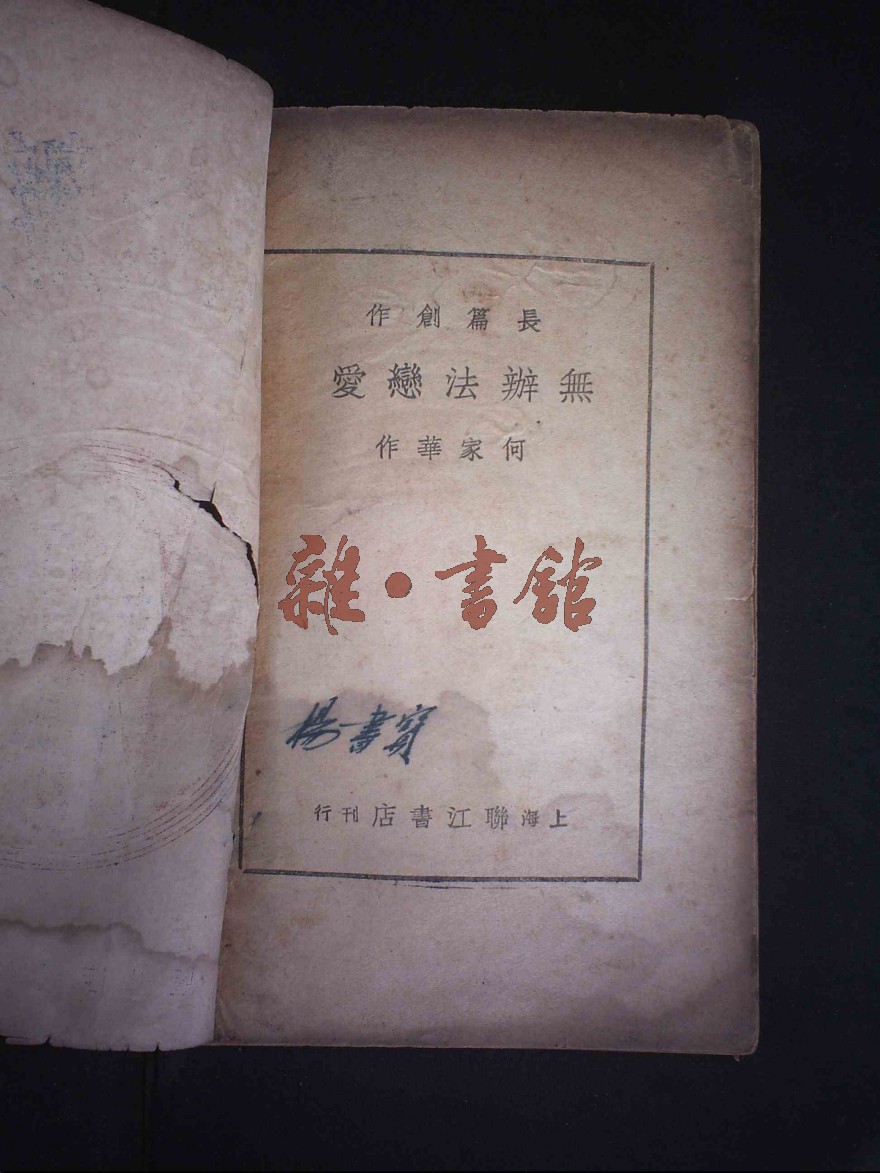 長篇創作
無辦法戀愛
何家華作
雜·書館
楊書寳
上海聯江書店刊行